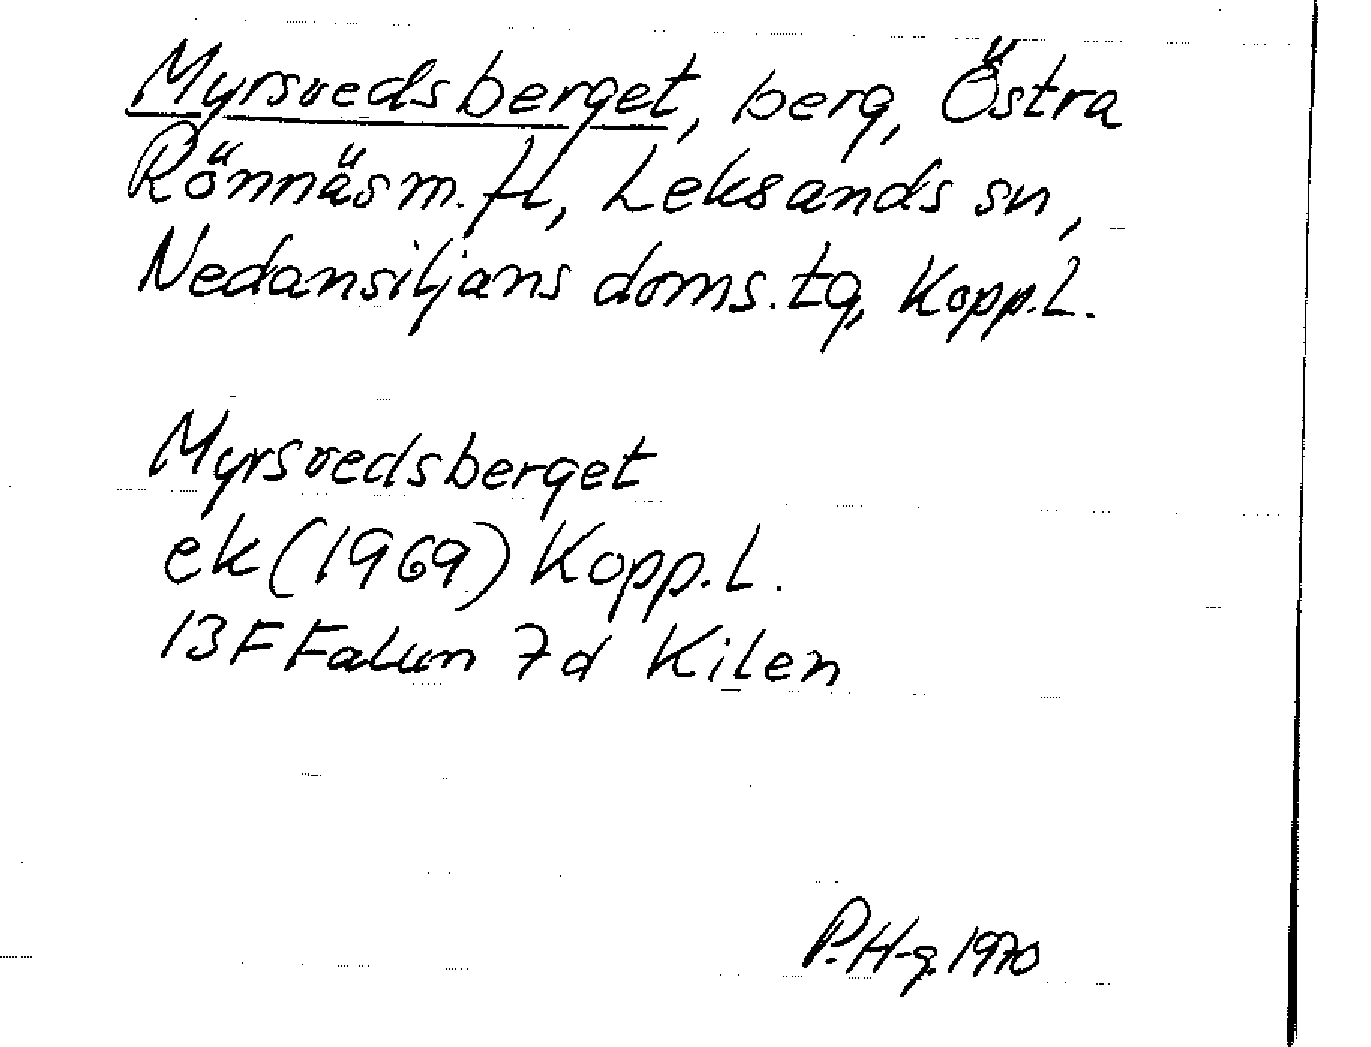 Myrsvedsberget, berg, Östra
Rönnäs m. fl, Leksands sn,
Nedansiljans doms. tg, Kopp.L.
Myrsvedsberget
ek (1969) Kopp.L.
13F Falun 7d Kilen
P.H-g. 1970